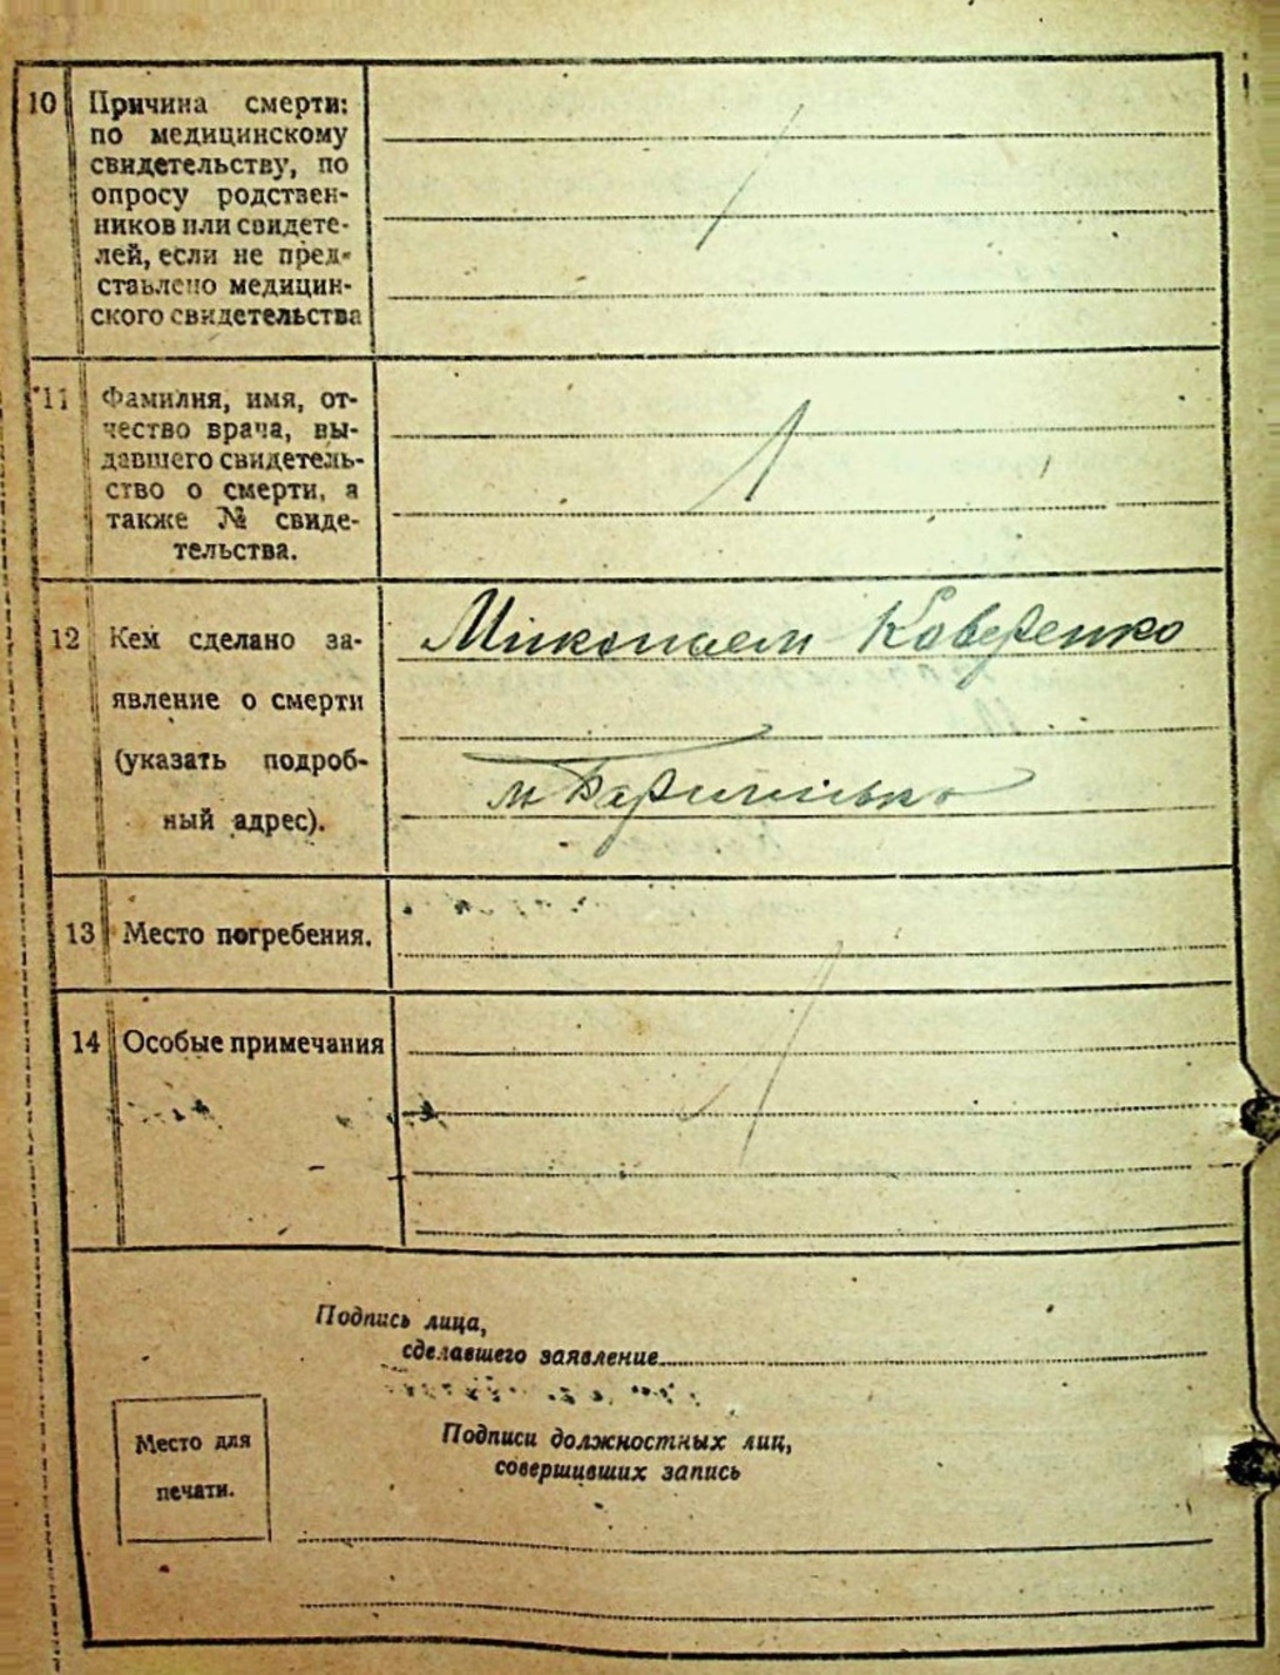 10 Причина смерти:
по медицинскому
свидетельству, по
опросу родствен-
ников или свидете-
лей, если не пред-
ставлено медицин-
ского свидетельства
11 Фамилия, имя, от-
чество врача, вы-
давшего свидетель-
ство о смерти, а
также № свиде-
тельства.
12 Кем сделано за-
явление о смерти
(указать подроб-
ный адрес).
Миколаем Коверенко
м
13 Место погребения.
14 Особые примечания
Подпись лица,
сделавшего заявление
Место для
печати.
Подписи должностных лиц,
совершивших запись